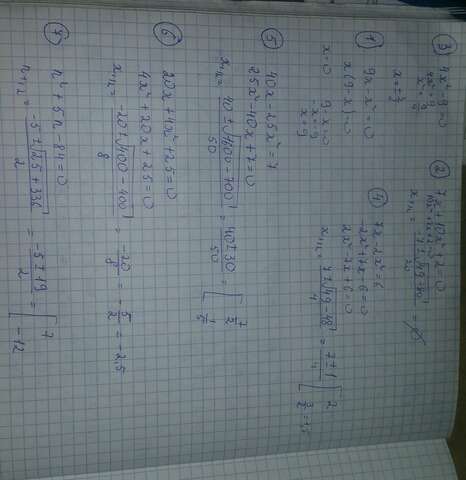 ③ 4x² - 9 = 0
4x² = 9
x² = 9/4
x = ± 3/2
② 7x + 10x² + 2 = 0
10x² + 7x + 2 = 0
x₁,₂ = (-7 ± √(49 - 80)) / 20 = ∅
① 9x - x² = 0
x(9 - x) = 0
x = 0 9 - x = 0
-x = -9
x = 9
④ 7x - 2x² = 6
-2x² + 7x - 6 = 0
2x² - 7x + 6 = 0
x₁,₂ = (7 ± √(49 - 48)) / 4 = (7 ± 1) / 4 [ 2
3/2 = 1,5
⑤ 40x - 25x² = 7
25x² - 40x + 7 = 0
x₁,₂ = (40 ± √(1600 - 700)) / 50 = (40 ± 30) / 50 = [ 7/5
1/5
⑥ 20x + 4x² + 25 = 0
4x² + 20x + 25 = 0
x₁,₂ = (-20 ± √(400 - 400)) / 8 = -20/8 = -5/2 = -2,5
⑦ n² + 5n - 84 = 0
n₁,₂ = (-5 ± √(25 + 336)) / 2 = (-5 ± 19) / 2 = [ 7
-12